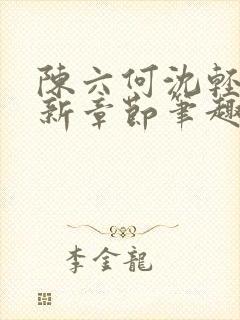 陳六何沈輕
新章節筆趣
李金龍